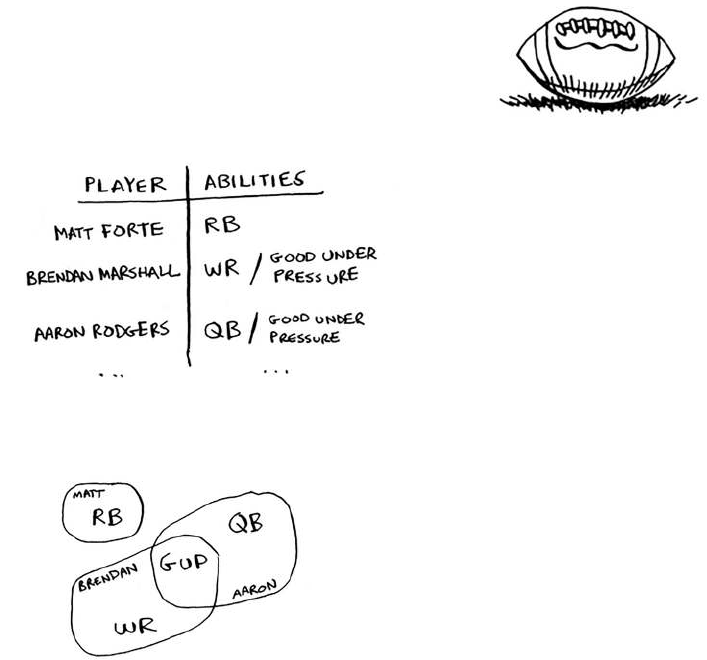 PLAYER ABILITIES
MATT FORTE RB
BRENDAN MARSHALL WR / GOOD UNDER
PRESSURE
AARON RODGERS QB / GOOD UNDER
PRESSURE
... ...
MATT
RB
QB
GUP
BRENDAN
AARON
WR